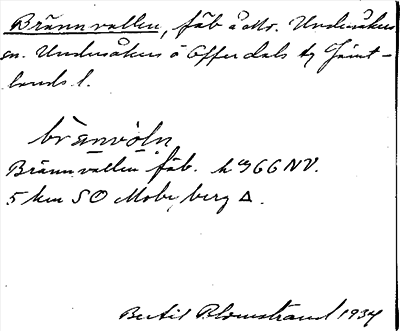 Brännvallen, fäb å Mo. Undersåkers
sn. Undersåkers o Offerdals tg Jämt-
lands l.
brä̀nvòln
Brännvallen fäb. h 366 NV.
5 km SO Moberg △.
Bertil Blomstrand 1934